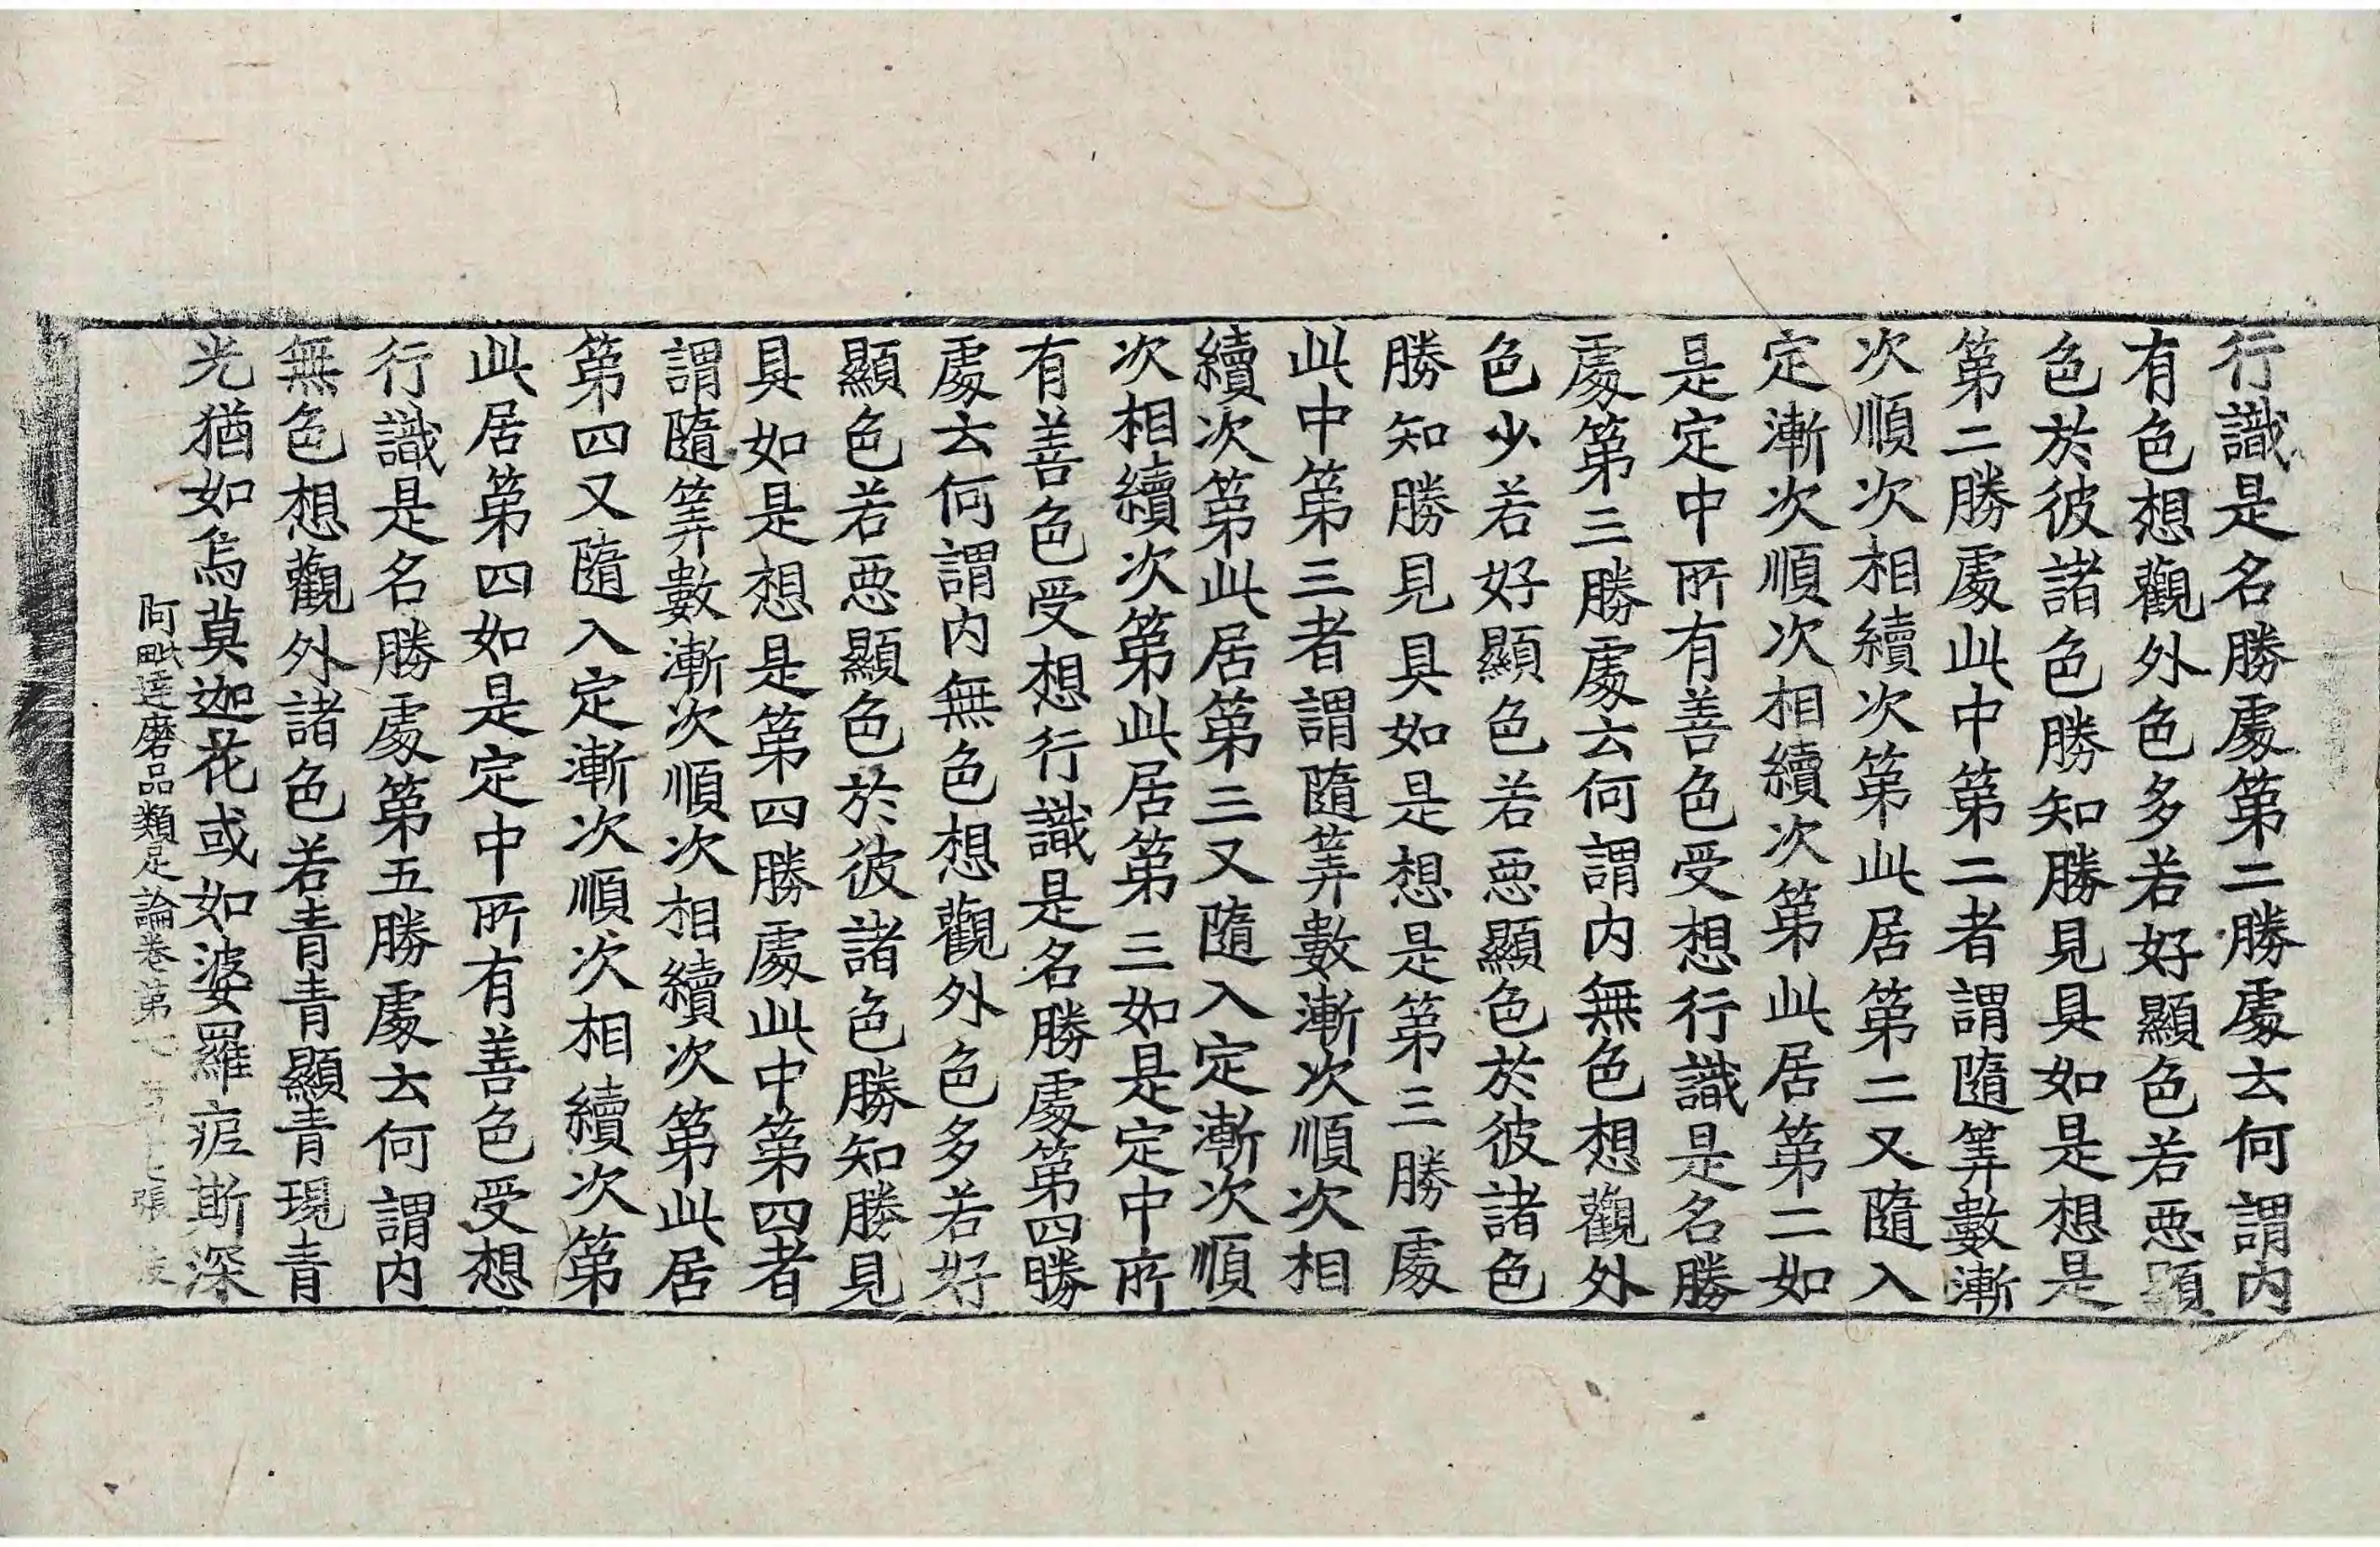 行識是名勝處第二勝處云何謂内
有色想觀外色多若好顯色若惡顯
色於彼諸色勝知勝見具如是想是
第二勝處此中第二者謂隨筭數漸
次順次相續次第此居第二又隨入
定漸次順次相續次第此居第二如
是定中所有善色受想行識是名勝
處第三勝處云何謂内無色想觀外
色少若好顯色若惡顯色於彼諸色
勝知勝見具如是想是第三勝處
此中第三者謂隨筭數漸次順次相
續次第此居第三又隨入定漸次順
次相續次第此居第三如是定中所
有善色受想行識是名勝處第四勝
處云何謂内無色想觀外色多若好
顯色若惡顯色於彼諸色勝知勝見
具如是想是第四勝處此中第四者
謂隨筭數漸次順次相續次第此居
第四又隨入定漸次順次相續次第
此居第四如是定中所有善色受想
行識是名勝處第五勝處云何謂内
無色想觀外諸色若青青顯青現青
光猶如烏莫迦花或如婆羅痆斯深
阿毗達磨品類足論卷第七 張